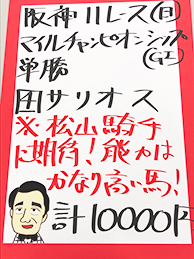 阪神11レース(日)
マイルチャンピオンシップ
(GI)
単勝
4サリオス
※松山騎手
に期待!能力は
かなり高い馬!
計10000円